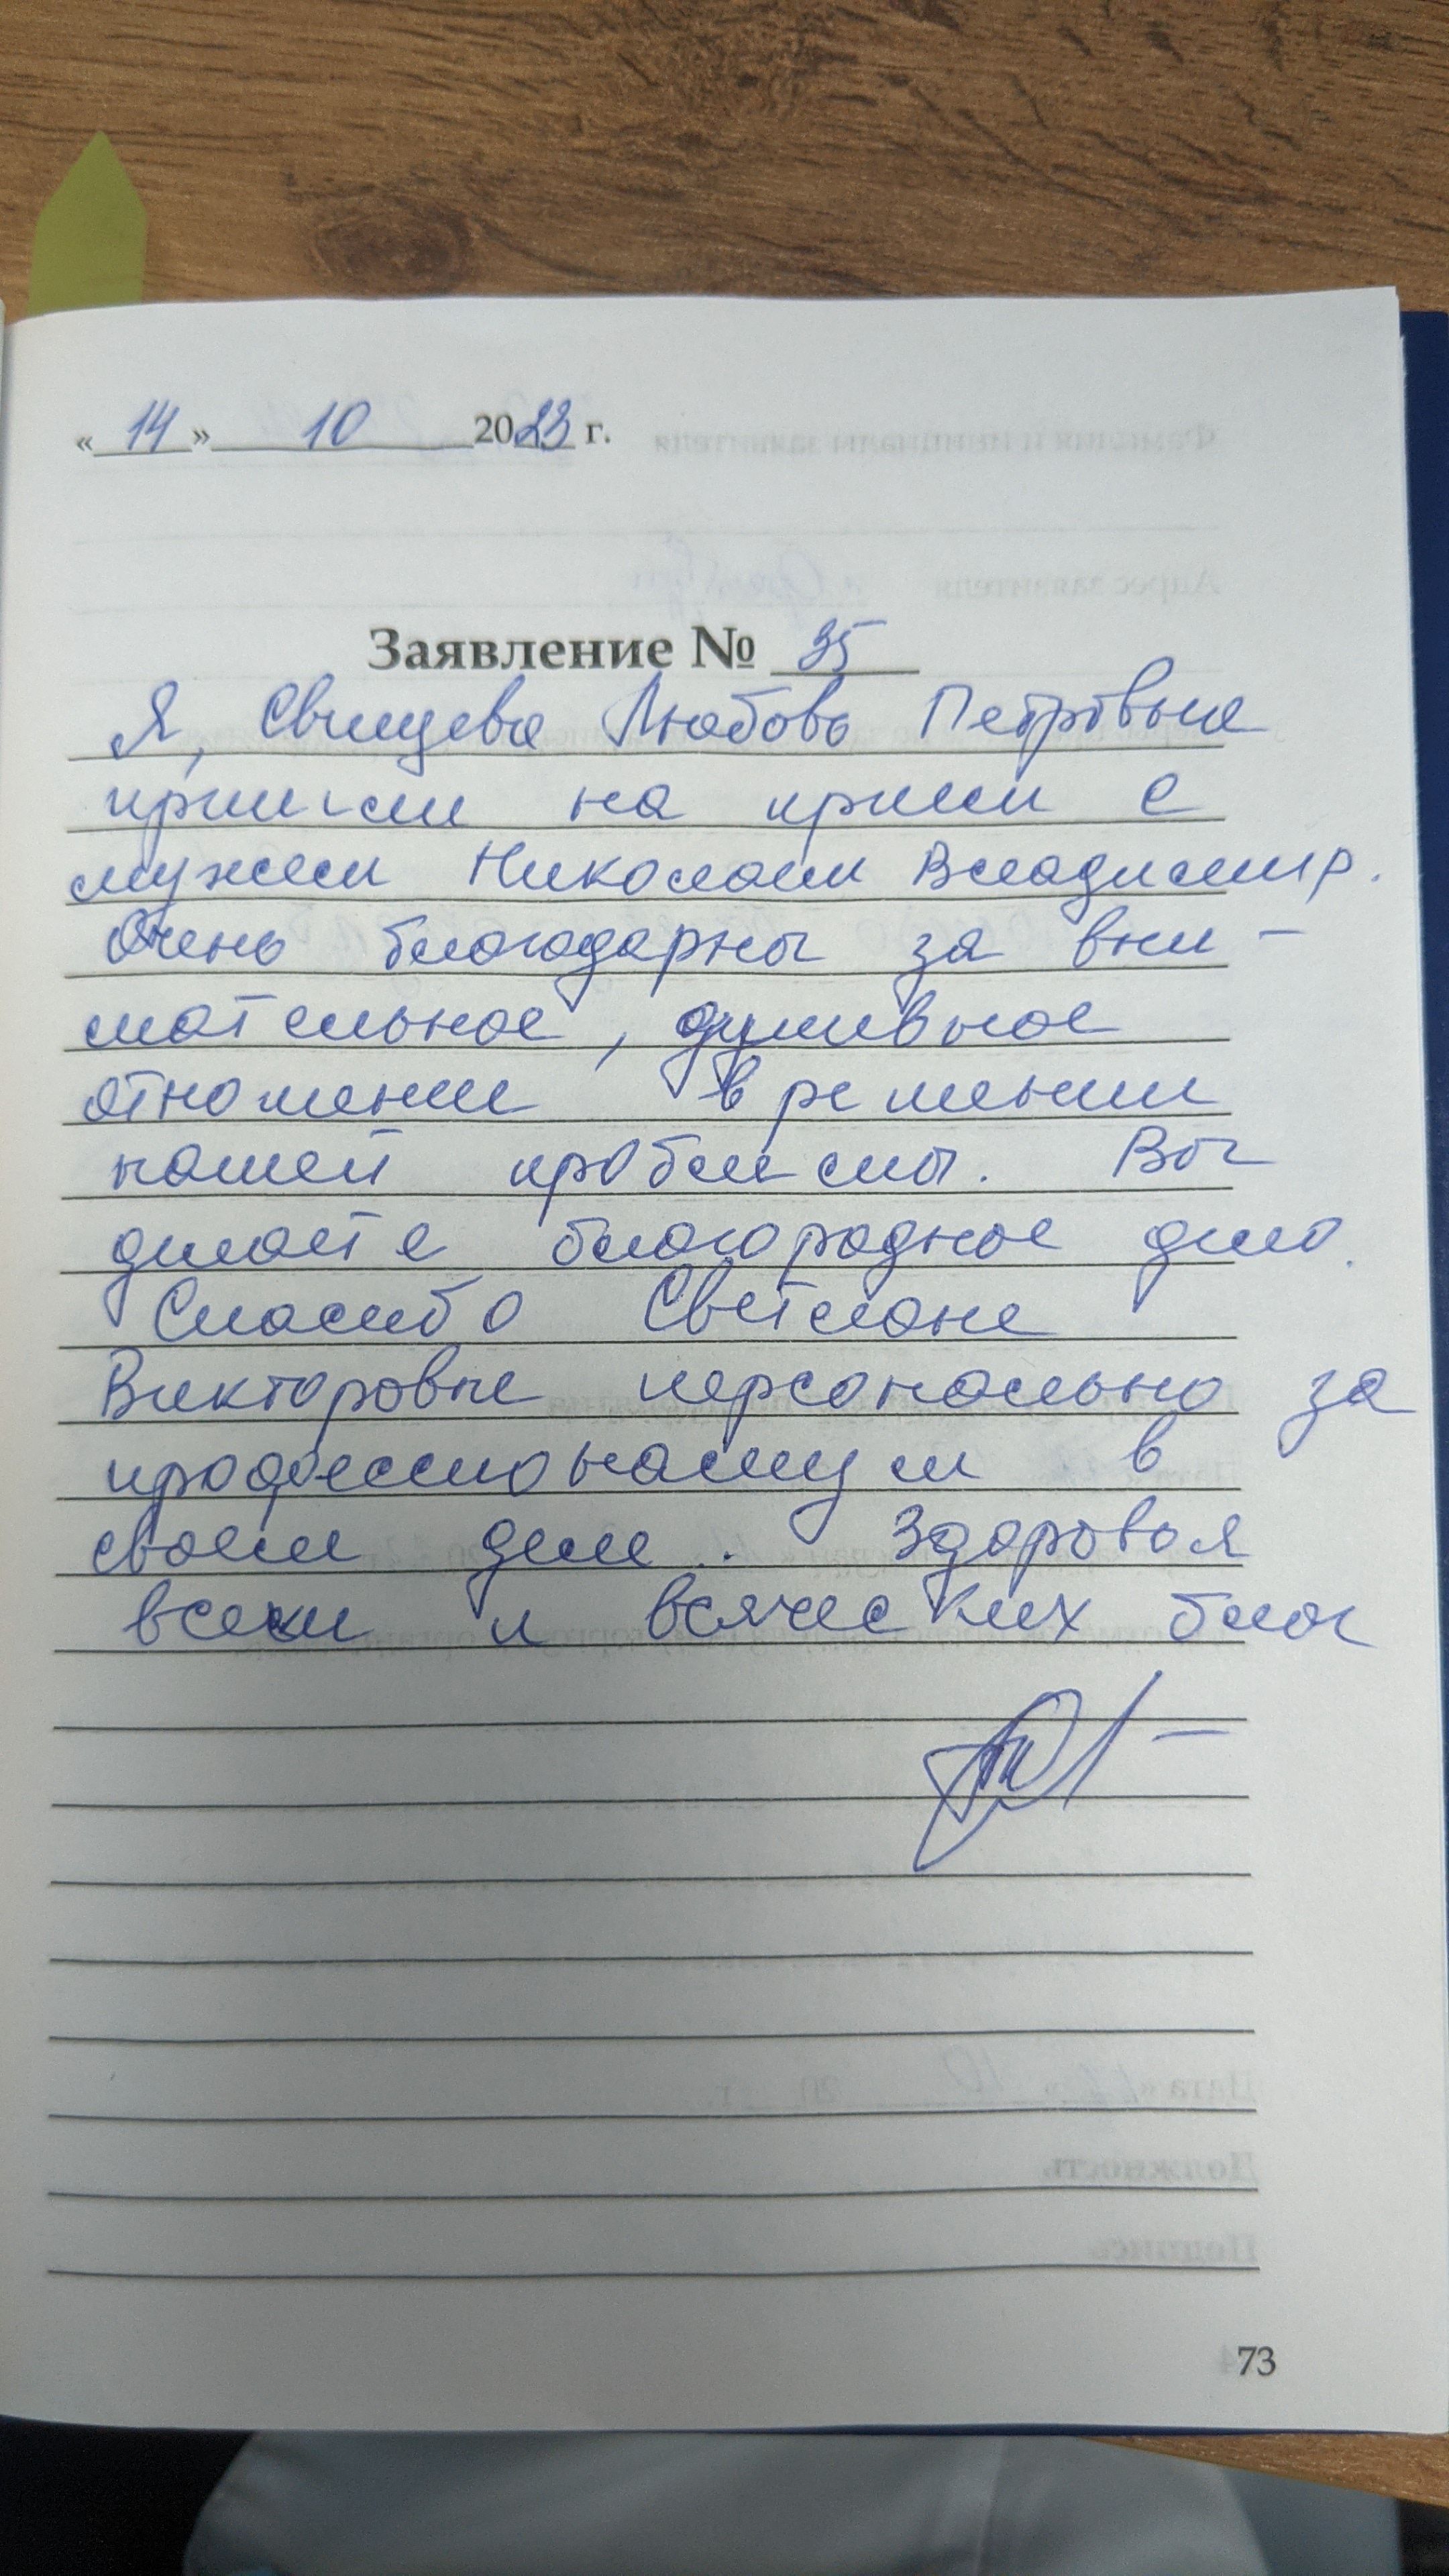 « 14 » 10 2023 г.
Заявление № 35
Я, Свищева Любовь Петровна
пришли на прием с
мужем Николаем Владимир.
Очень благодарны за вни-
мательное, душевное
отношение в решении
нашей проблемы. Вы
делаете благородное дело.
Спасибо Светлане
Викторовне персонально за
профессионализм в
своем деле.. Здоровья
всем и всяческих благ
73